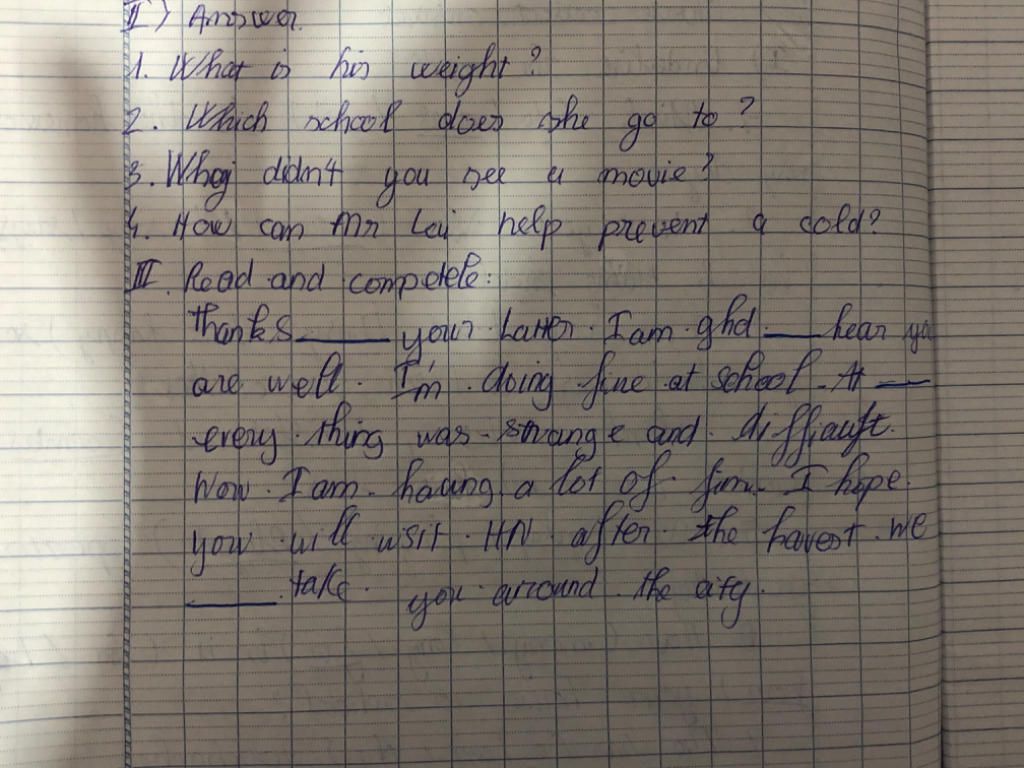 II) Answer.
1. What is his weight ?
2. Which school does she go to ?
3. Why didn't you see a movie?
4. How can Mr Lai help prevent a cold?
III. Read and complete:
Thanks ______ your Latter. I am glad ____ hear you
are well. I'm doing fine at school. At ____
every thing was strange and difficult.
Now I am having a lot of fun. I hope
you will visit HN after the havest. we
______ take you arround the city.